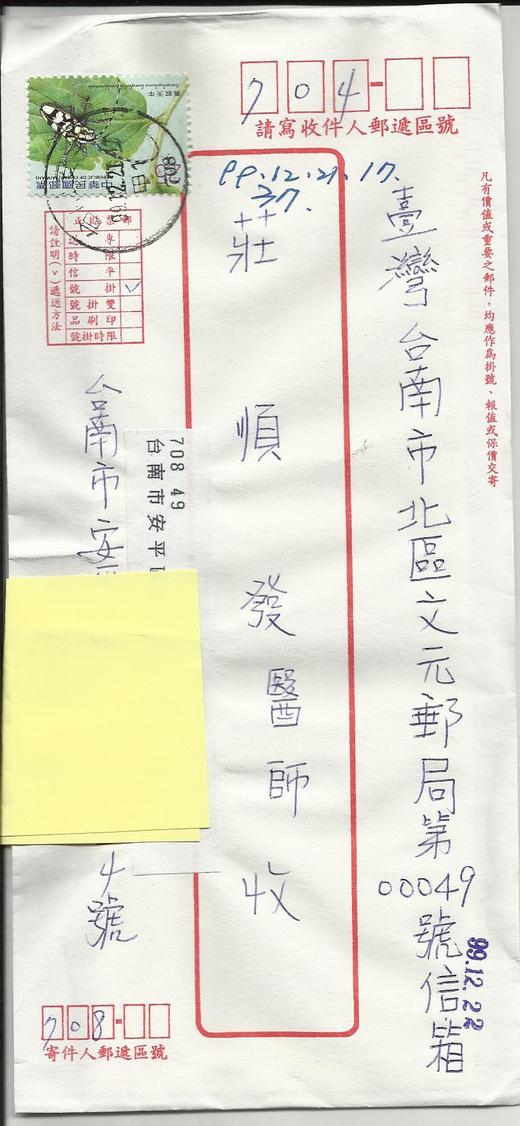 704
請寫收件人郵遞區號
凡有價值或重要之郵件，均應作為掛號、報值或保價交寄
臺灣台南市北區文元郵局第
00049
號信箱
99.12.22
99.12.21.17.
37.
莊順發醫師收
黃紋天牛
中華民國郵票
REPUBLIC OF CHINA (TAIWAN)
請註明(v)遞送方法
正貼票郵
限時
平信
掛號
v
雙掛號
印刷品
限時掛號
708 49
台南市安平
台南市安
號
708
寄件人郵遞區號